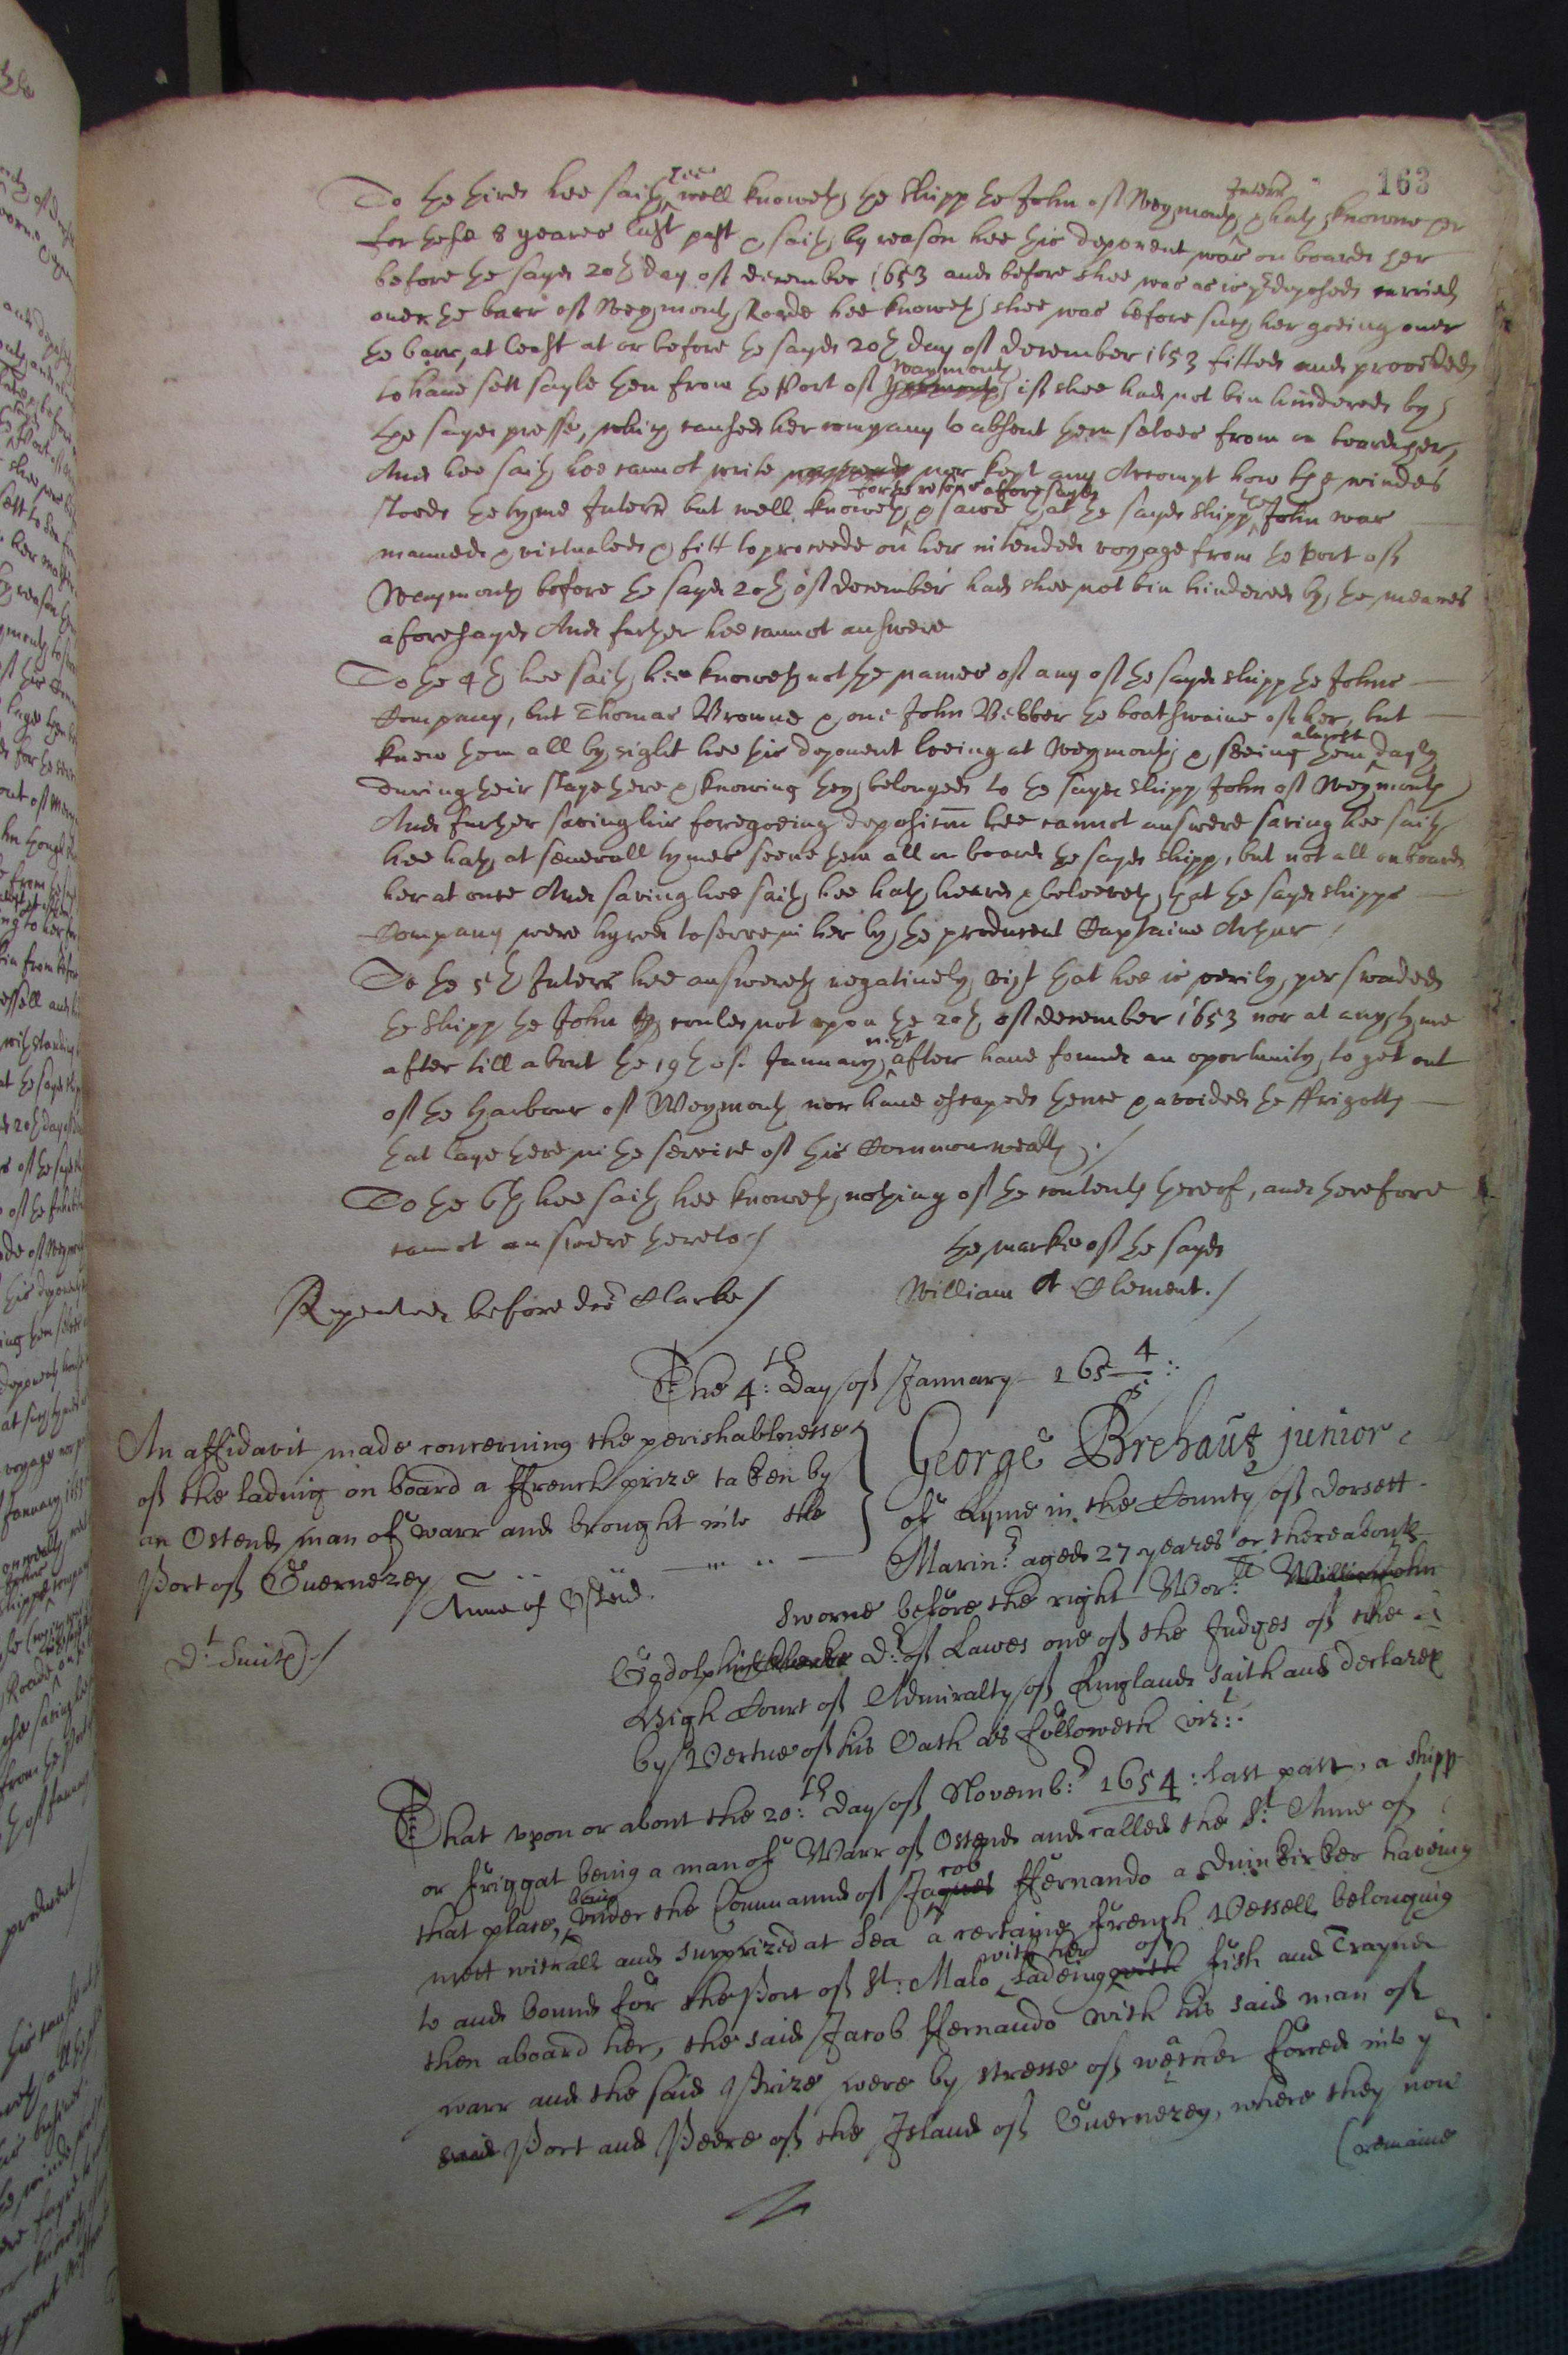 163
To the third hee saith hee well knoweth the Shipp the John of Weymouth Interr & hath knowne her
for these 8 yeares last past & saith by reason hee this deponent was on board her
before the sayd 20th day of december 1653 and before shee was as is predeposed carried
over the barr of Weymouth Roade hee knoweth shee was before such her goeing over
the barr, at least at or before the sayd 20th day of december 1653 fitted and provided
to have sett sayle then from the Port of Yarmouth Waymouth if shee had not bin hindered by
the sayd presse, which caused her company to absent them selves from on board her,
And hee saith hee cannot write nor kept any Accompt how the windes
stoode the tyme Interr but well knoweth for the reasons aforesayd & sawe that the sayd Shipp the John was
manned & victualed & fitt to proceede on her intended voyage from the Port of
Weymouth before the sayd 20th of december had shee not bin hindered by the meanes
aforesayd And further hee cannot answere
To the 4th hee saith hee knoweth not the names of any of the sayd shipp the Johns
Company, but Thomas Browne & one John Webber the boatswaine of her, but
knew them all by sight hee this deponent beeing at Weymouth & seeing them almost dayly
during their staye there & knowing they belonged to the sayd shipp John of Weymouth
And further saving his foregoeing deposition hee cannot answere saving hee saith
hee hath at severall tymes seene them all on board the sayd shipp, but not all on board
her at once And saving hee saith hee hath heard & beleeveth that the sayd shipps
Company were hyred to serve in her by the producent Captaine Arthur /
To the 5th Interr hee answereth negatively, vizt that hee is verily perswaded
the Shipp the John could not upon the 20th of december 1653 nor at any tyme
after till about the 19th of January next after have found an oportunity to get out
of the harbour of Weymouth nor have escaped thence & avoided the ffrigotts
that laye there in the service of this Commonwealth /
To the 6th hee saith hee knoweth nothing of the contents thereof, and therefore
cannot answere thereto /
the marke of the sayd
William A Clement. /
Repeated before dr Clarke /
The 4:th Day of January 165 4/5 :
An affidavit made concerning the perishablenesse
of the ladeing on board a ffrench prize taken by
an Ostend man of warr and brought into the
Port of Guernezey
Anne of Ostend.
Dr. Smith /
George Brehaut junior
of Lyme in the County of Dorsett
Marinr: aged 27 yeares or thereabouts
sworne before the right Worll: William John
Godolphin Clerke Dr: of Lawes one of the Judges of the
High Court of Admiralty of England saith and declareth
by Vertue of his Oath as followeth vizt:
That upon or about the 20:th Day of Novembr: 1654: last past, a shipp
or friggat being a man of Warr of Ostend and called the St: Anne of
that place, being under the Command of Jaques cob ffernando a Duinkirker having
mett withall and surprized at Sea a certaine french Vessell belonging
to and bound for the Port of St: Malo with her Ladeing with of fish and Trayne
then aboard her, the said Jacob ffernando with his said man of
warr and the said Prize were by stresse of weather forced into ye
said Port and Peere of the Island of Guernezey, where they now
(remaine